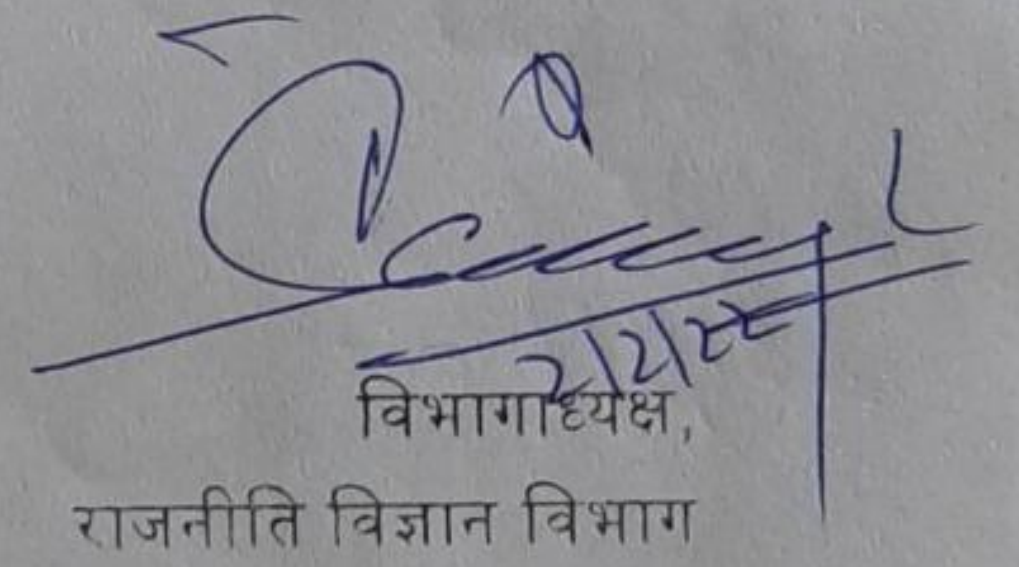 २/२/२२
विभागाध्यक्ष,
राजनीति विज्ञान विभाग